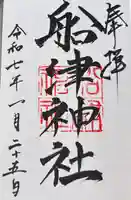 奉拝
船津神社
令和七年一月二十五日